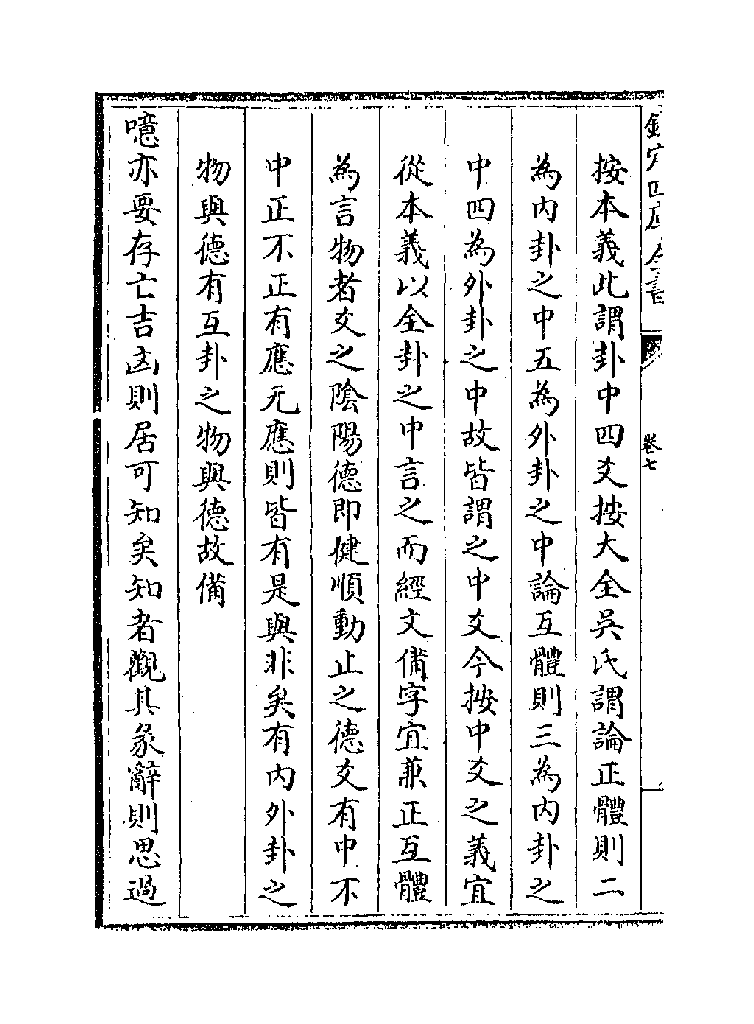 欽定四庫全書
卷七
按本義此謂卦中四爻按大全吳氏謂論正體則二
為内卦之中五為外卦之中論互體則三為内卦之
中四為外卦之中故皆謂之中爻今按中爻之義宜
從本義以全卦之中言之而經文備字宜兼正互體
為言物者爻之陰陽德即健順動止之德爻有中不
中正不正有應无應則皆有是與非矣有内外卦之
物與德有互卦之物與德故備
噫亦要存亡吉凶則居可知矣知者觀其彖辭則思過